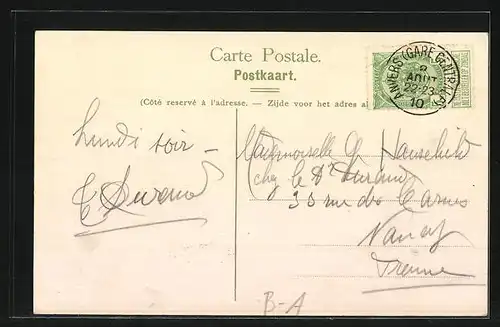 Carte Postale.
Postkaart.
(Côté reservé à l'adresse. — Zijde voor het adres
ANVERS (GARE CENTRALE)
8
AOUT
22-23
10
Lundi soir —
E Durand
Mademoiselle G Hauschild
chez le Dr Durand
33 rue des Carmes
Nancy
B-A